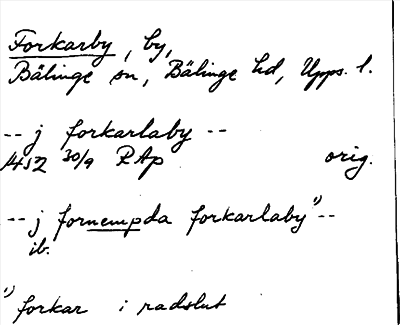 Forkarby, by,
Bälinge sn, Bälinge hd, Upps. l.
-- j forkarlaby --
1452 30/9 RAp orig.
-- j fornempda forkarlaby 1) --
ib.
1) forkar i radslut